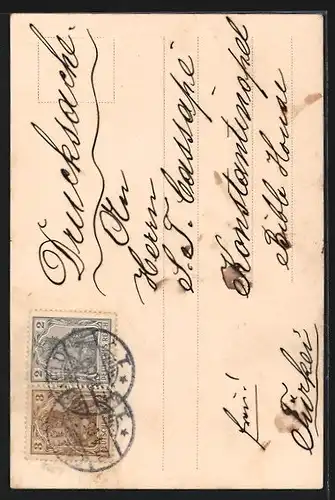 Drucksache.
An
Herrn
S. T. Cassapé
Konstantinopel
Bible House
frei!
Türkei
2
2
3
3